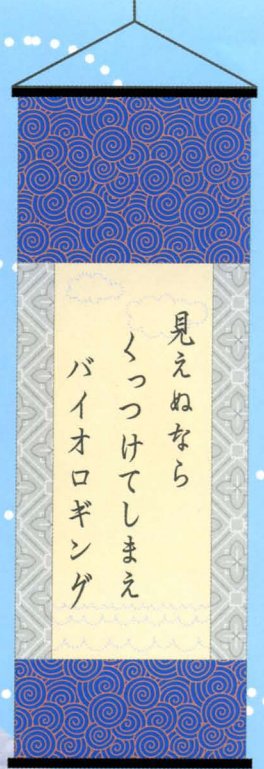 見えぬなら
くっつけてしまえ
バイオロギング